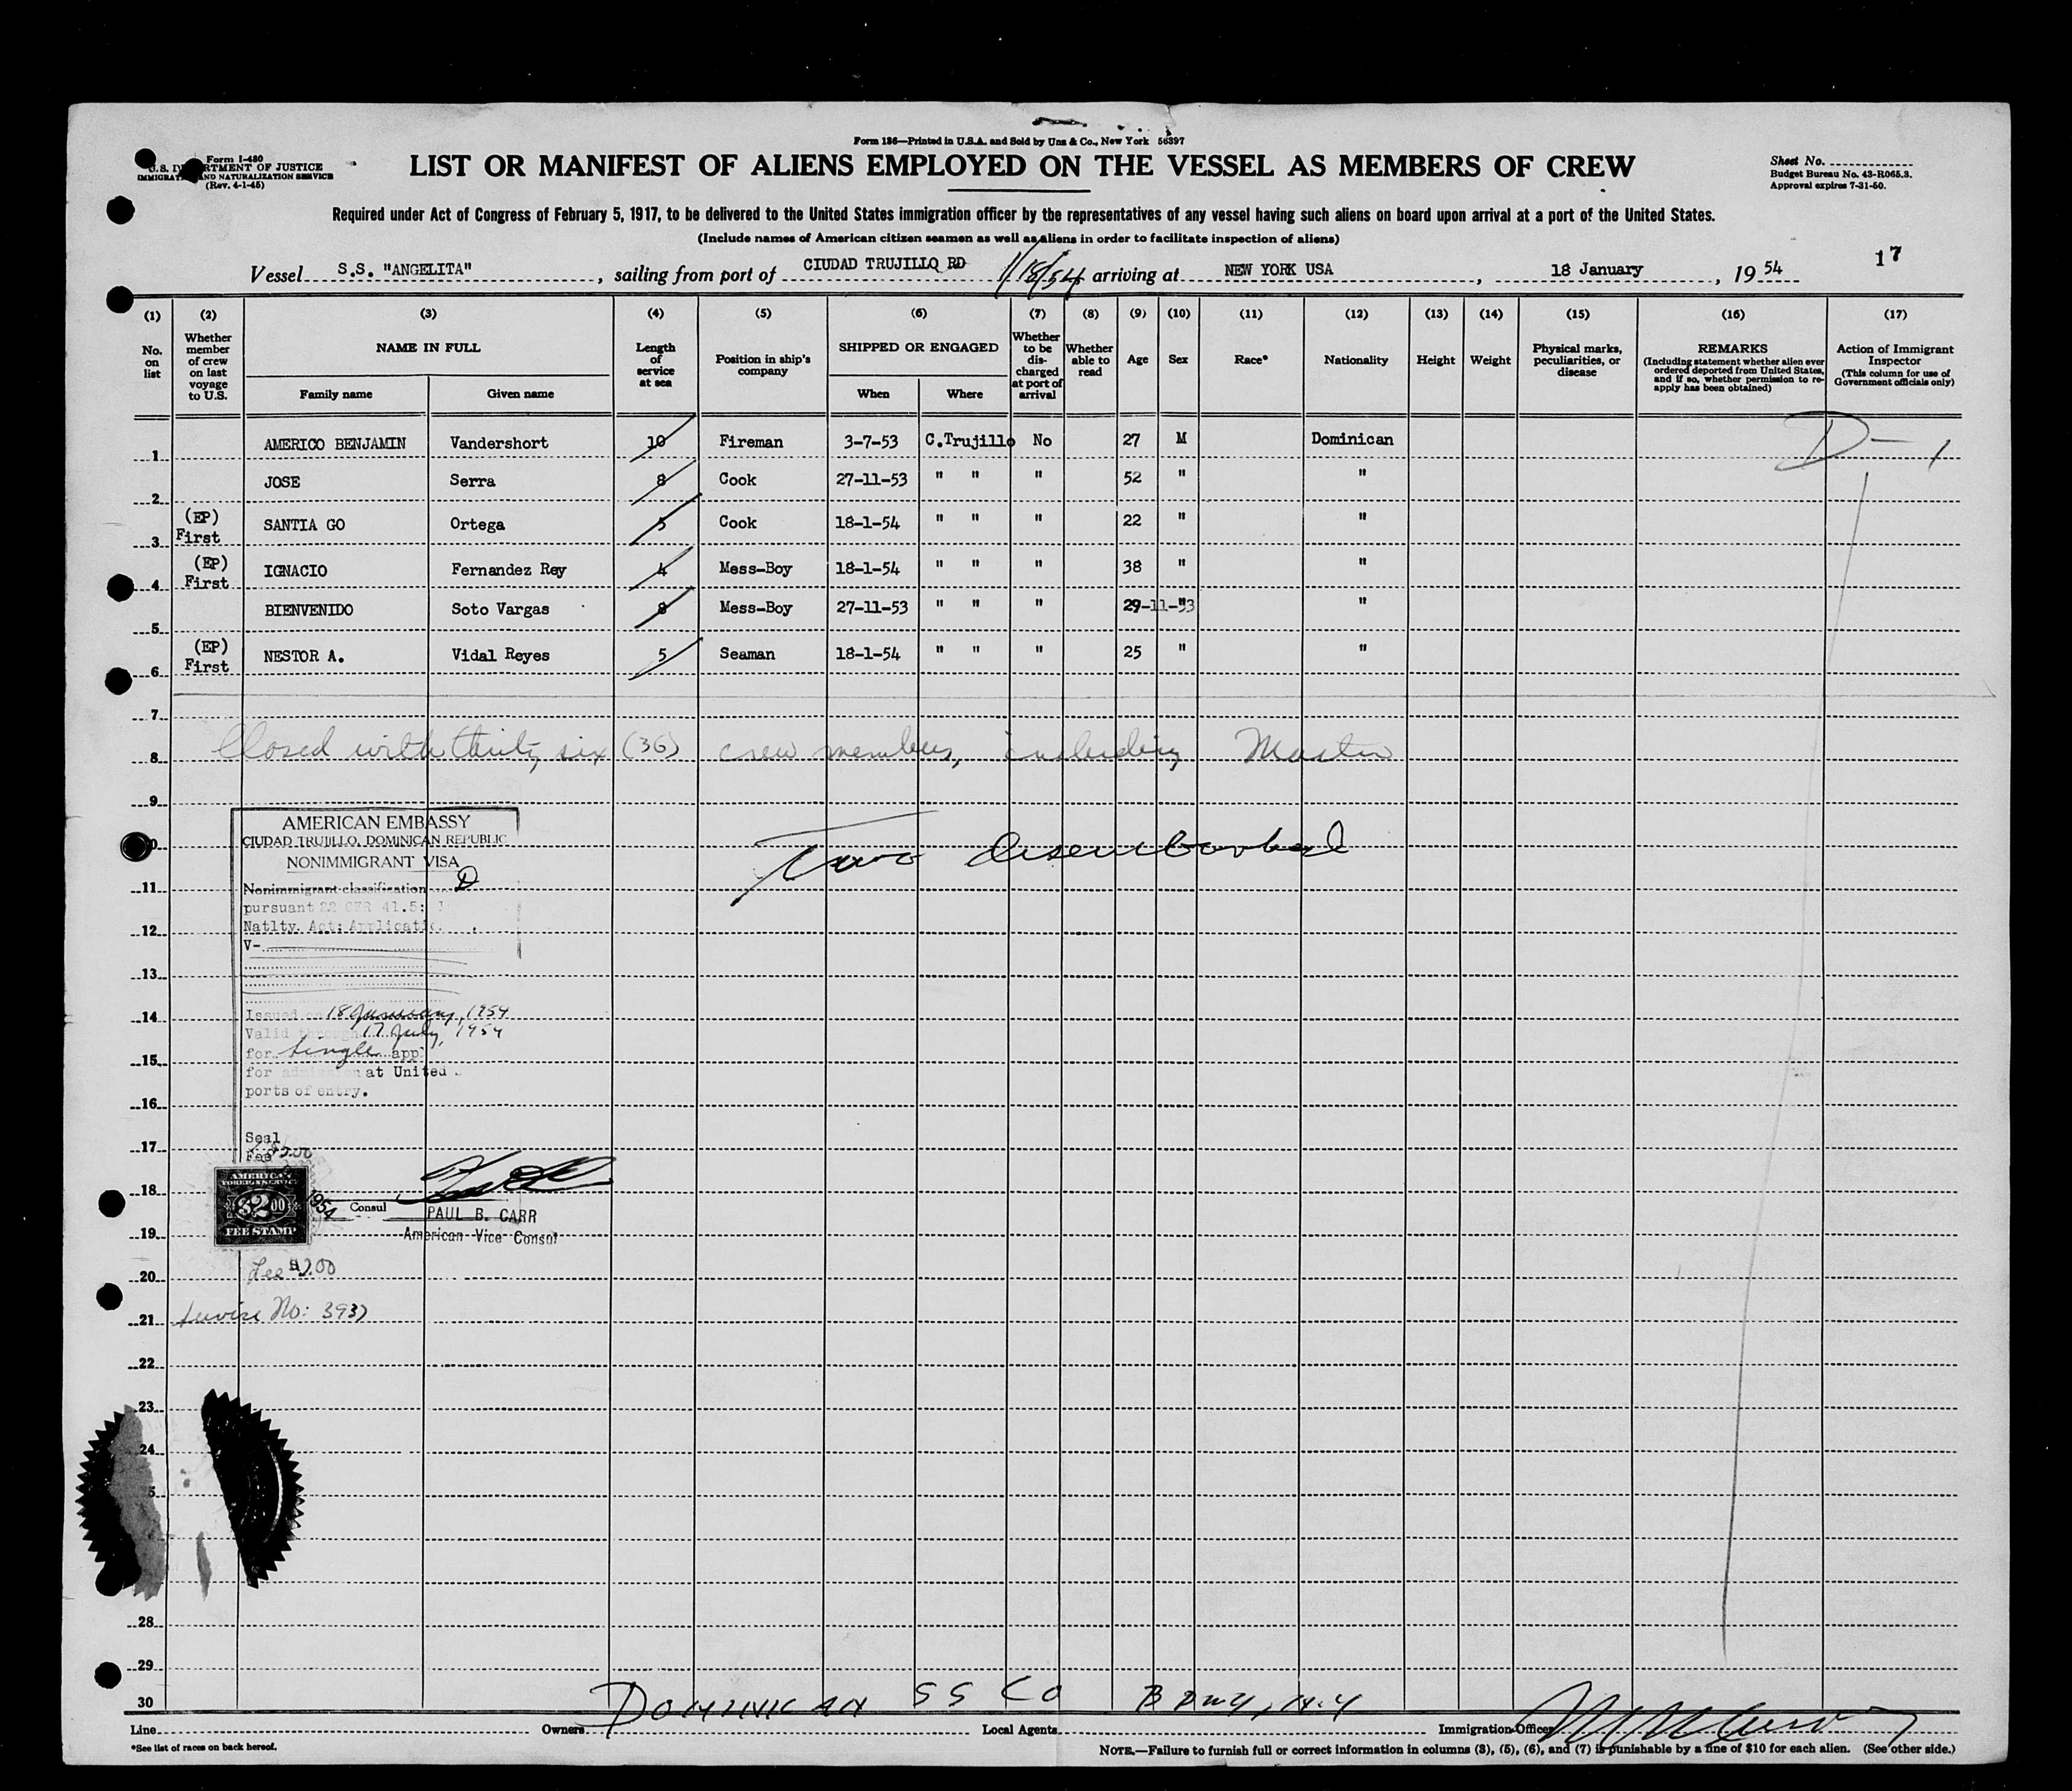 Form 136—Printed in U.S.A. and Sold by Unz & Co., New York 56397
Form I-480
U.S. DEPARTMENT OF JUSTICE
IMMIGRATION AND NATURALIZATION SERVICE
(Rev. 4-1-45)
LIST OR MANIFEST OF ALIENS EMPLOYED ON THE VESSEL AS MEMBERS OF CREW
Sheet No.
Budget Bureau No. 43-R065.3.
Approval expires 7-31-50.
Required under Act of Congress of February 5, 1917, to be delivered to the United States immigration officer by the representatives of any vessel having such aliens on board upon arrival at a port of the United States.
(Include names of American citizen seamen as well as aliens in order to facilitate inspection of aliens)
17
Vessel S.S. "ANGELITA", sailing from port of CIUDAD TRUJILLO RD 1/18/54 arriving at NEW YORK USA, 18 January, 1954
(1) (2) (3) (4) (5) (6) (7) (8) (9) (10) (11) (12) (13) (14) (15) (16) (17)
No. on list
Whether member of crew on last voyage to U.S.
NAME IN FULL
Family name
Given name
Length of service at sea
Position in ship's company
SHIPPED OR ENGAGED
When
Where
Whether to be discharged at port of arrival
Whether able to read
Age
Sex
Race*
Nationality
Height
Weight
Physical marks, peculiarities, or disease
REMARKS
(Including statement whether alien ever ordered deported from United States, and if so, whether permission to re-apply has been obtained)
Action of Immigrant Inspector
(This column for use of Government officials only)
1 AMERICO BENJAMIN Vandershort 10 Fireman 3-7-53 C.Trujillo No 27 M Dominican D-1
2 JOSE Serra 8 Cook 27-11-53 " " " 52 " "
3 (EP) First SANTIA GO Ortega 5 Cook 18-1-54 " " " 22 " "
4 (EP) First IGNACIO Fernandez Rey 4 Mess-Boy 18-1-54 " " " 38 " "
5 BIENVENIDO Soto Vargas 8 Mess-Boy 27-11-53 " " " 29-11-53 " "
6 (EP) First NESTOR A. Vidal Reyes 5 Seaman 18-1-54 " " " 25 " "
7
8 Closed with thirty six (36) crew members, including Master
9
AMERICAN EMBASSY
CIUDAD TRUJILLO, DOMINICAN REPUBLIC
Two disembarked
NONIMMIGRANT VISA
11 Nonimmigrant classification D
pursuant 22 CFR 41.5:
12 Natlty. Act; Applicati
V-
13
14 Issued on 18 January, 1954
Valid through 17 July, 1954
15 for single appl
for admission at United
ports of entry.
16
Seal
17 Fee $2.00
AMERICAN
FOREIGN SERVICE
$2.00
FEE STAMP
1954
18
Consul PAUL B. CARR
19 American Vice Consul
20 Fee $2.00
21 Service No: 3937
22
23
24
5
28
29
30
Line
Owners DOMINICAN SS CO
Local Agents BDWY, N.Y
Immigration Officer
*See list of races on back hereof.
NOTE.—Failure to furnish full or correct information in columns (3), (5), (6), and (7) is punishable by a fine of $10 for each alien. (See other side.)